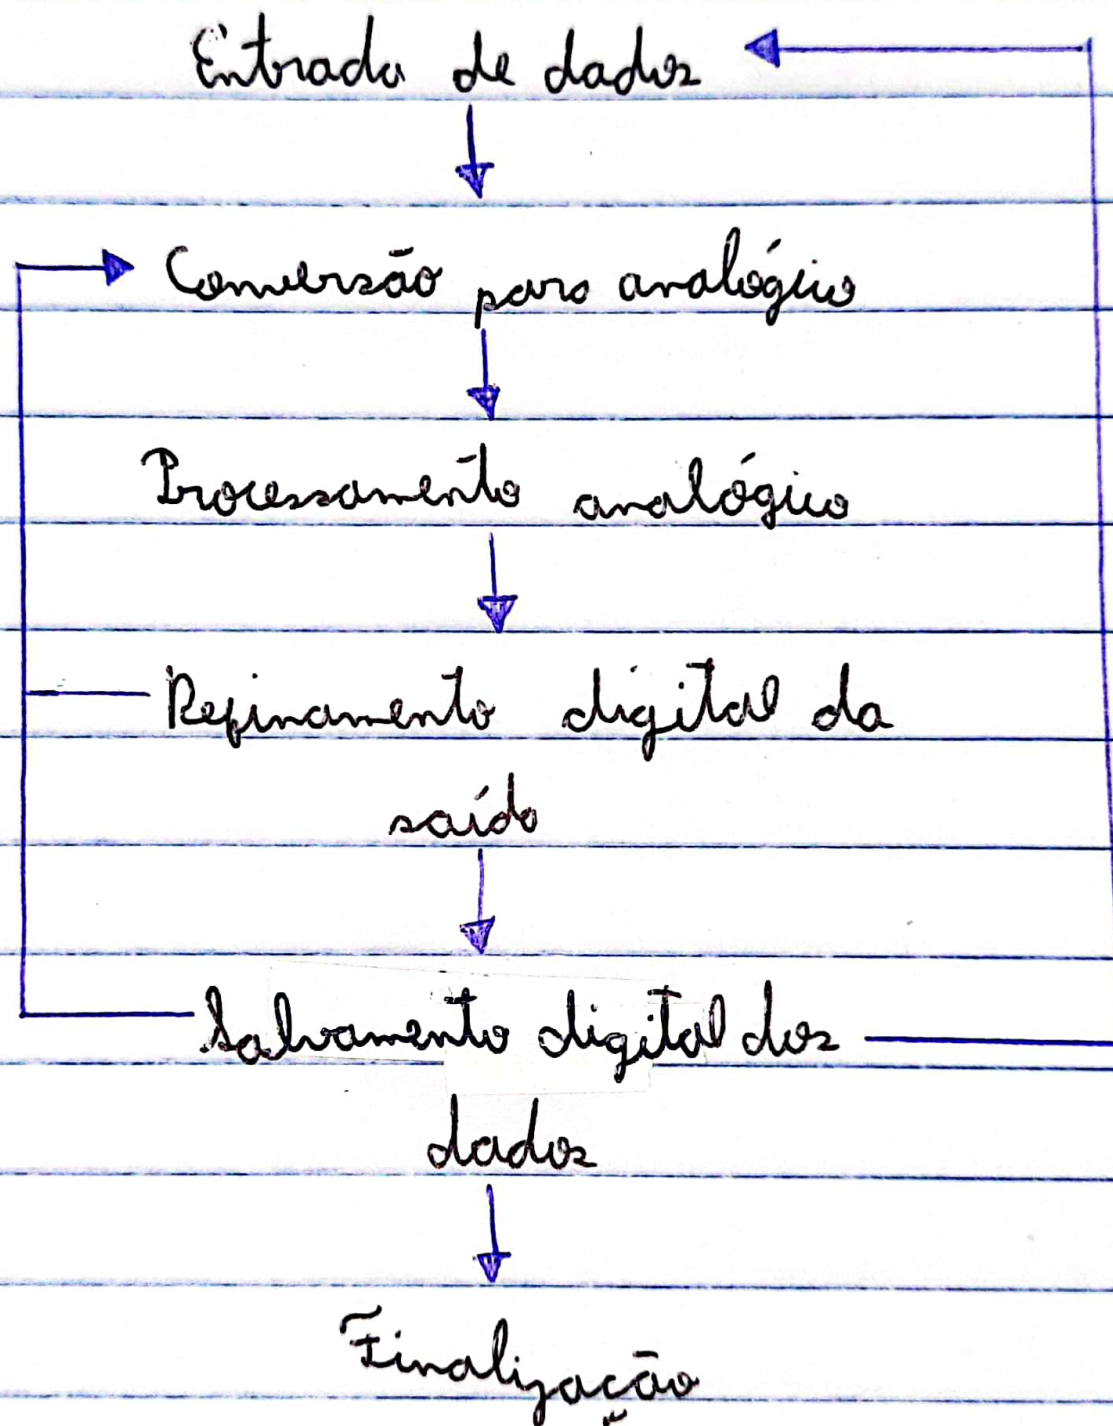 Entrada de dados
Conversão para analógico
Processamento analógico
Refinamento digital da
saída
Salvamento digital dos
dados
Finalização